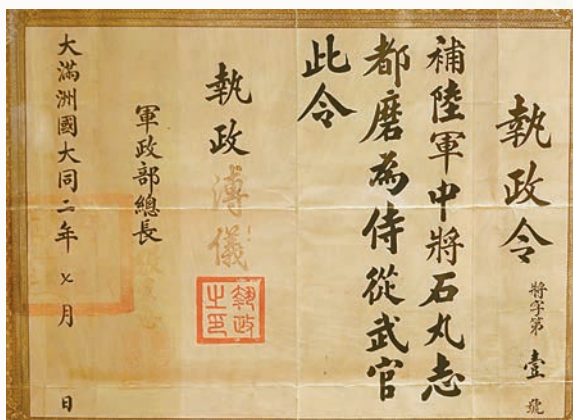 執政令
將字第壹號
補陸軍中將石丸志
都磨為侍從武官
此令
執政 溥儀
執政之印
軍政部總長
大滿洲國大同二年七月 日